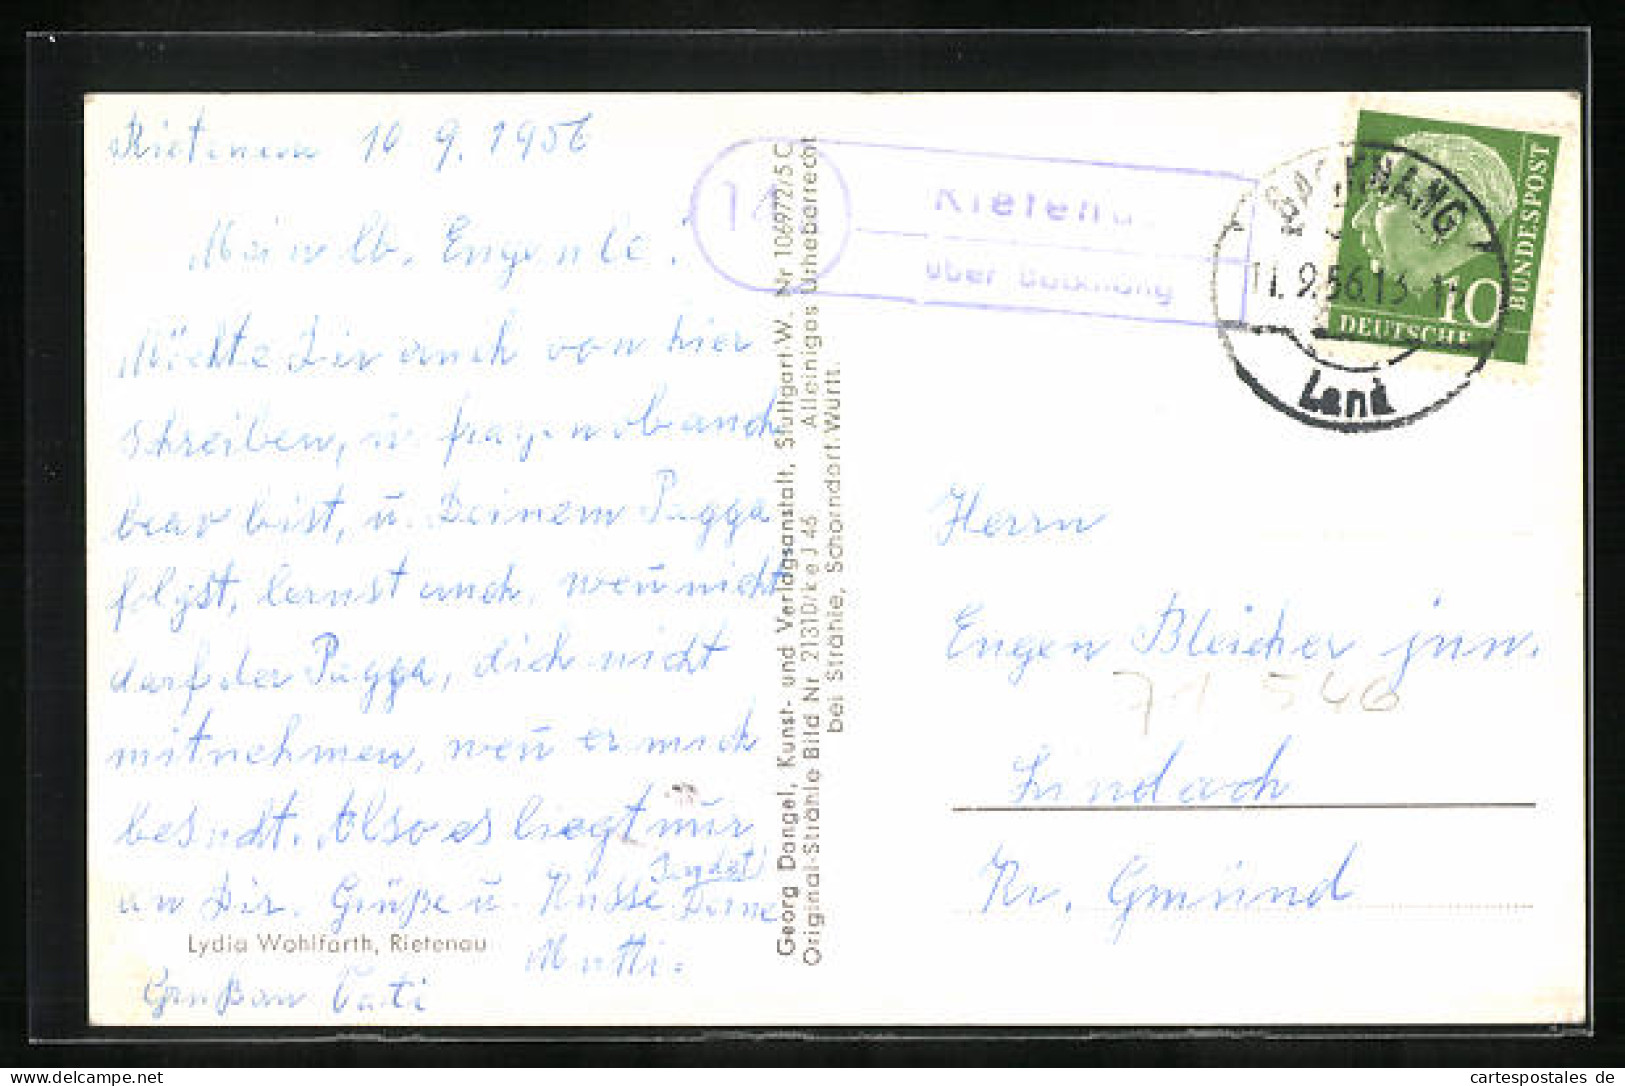 Rietenau 10.9.1956
Mein lb. Eugenle!
Möchte Dir auch von hier
schreiben, u. fragen ob auch
brav bist, u. Deinem Pagga
folgst, lernst auch, weñ nicht
darf der Pagga, dich nicht
mitnehmen, weñ er mich
besucht. Also es liegt nur
an Dir. Grüße u. Küsse Deine
Mutti.
Gruß an Vati
Lydia Wohlfarth, Rietenau
Georg Dangel, Kunst- und Verlagsanstalt, Stuttgart W. Nr 106972/5 C
Original-Strähle Bild Nr 21310/ke J 46 Alleiniges Urheberrecht
bei Strähle, Schorndorf. Württ.
14
Rietenau
über Backnang
BACKNANG
11.9.56.13
Land
10
DEUTSCHE
BUNDESPOST
Herrn
Eugen Bleicher jun.
71546
Lindach
Kr. Gmünd
www.delcampe.net
cartespostales de